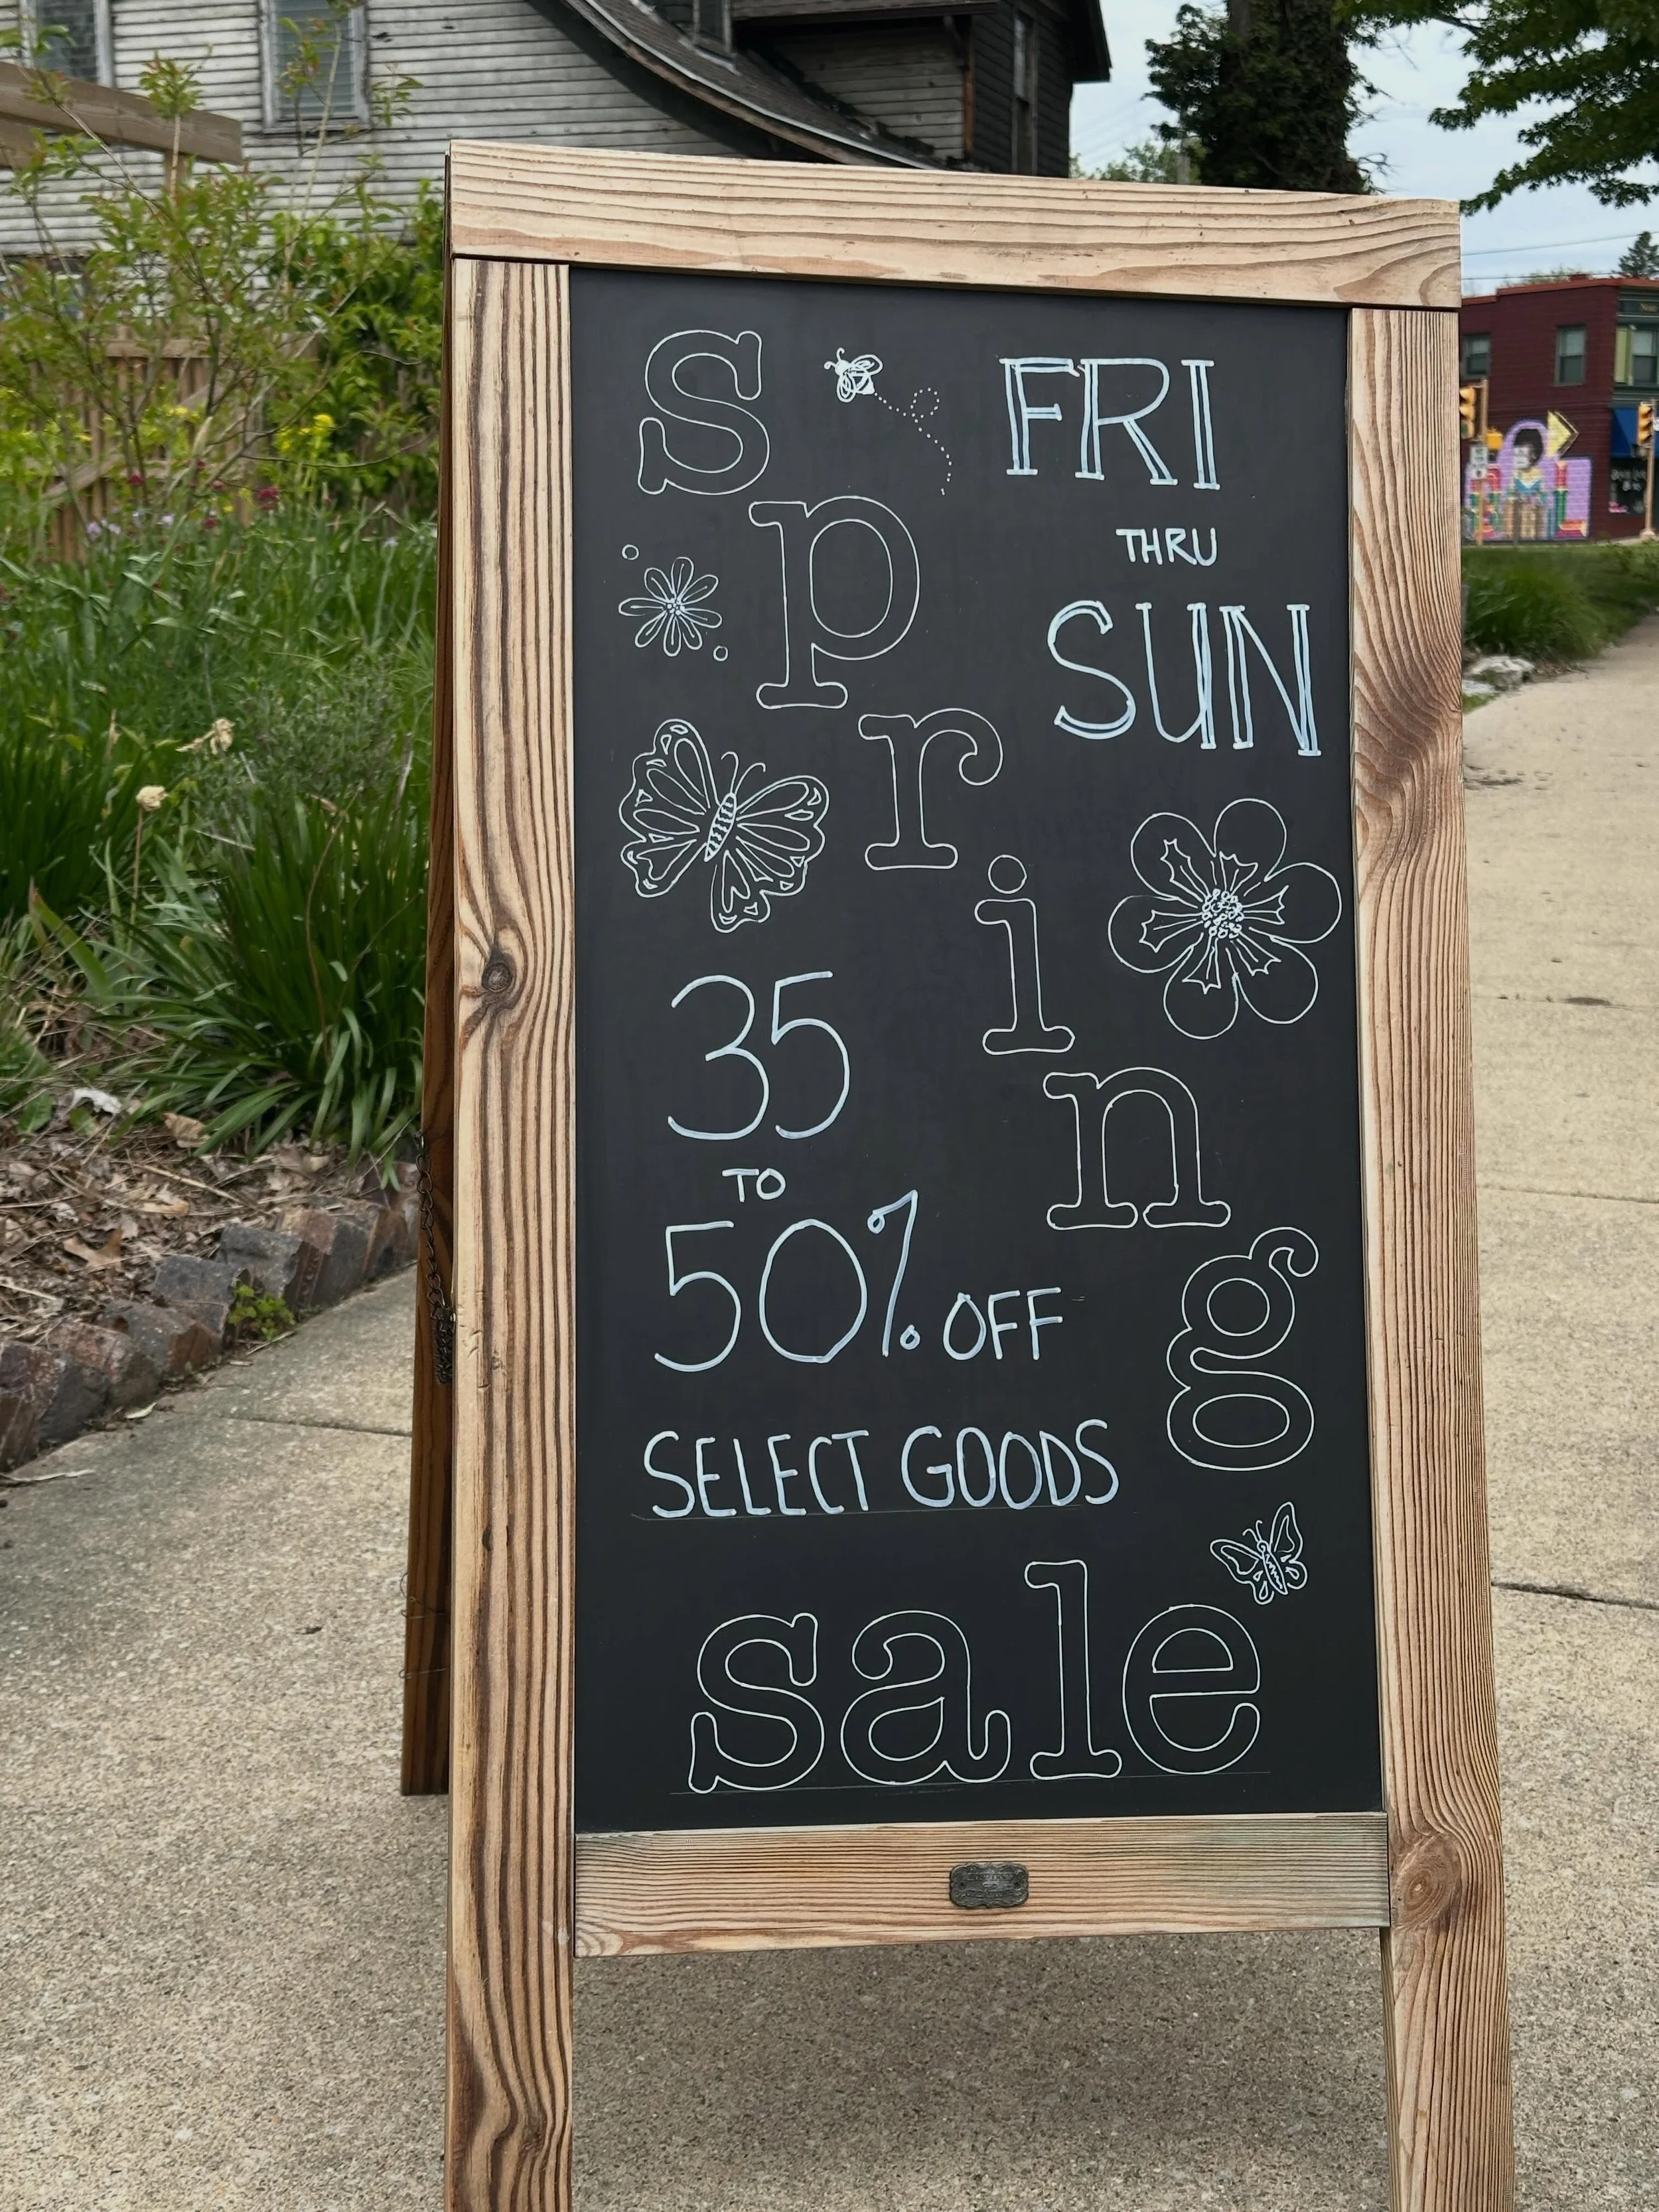 spring
FRI
THRU
SUN
35
TO
50% OFF
SELECT GOODS
sale